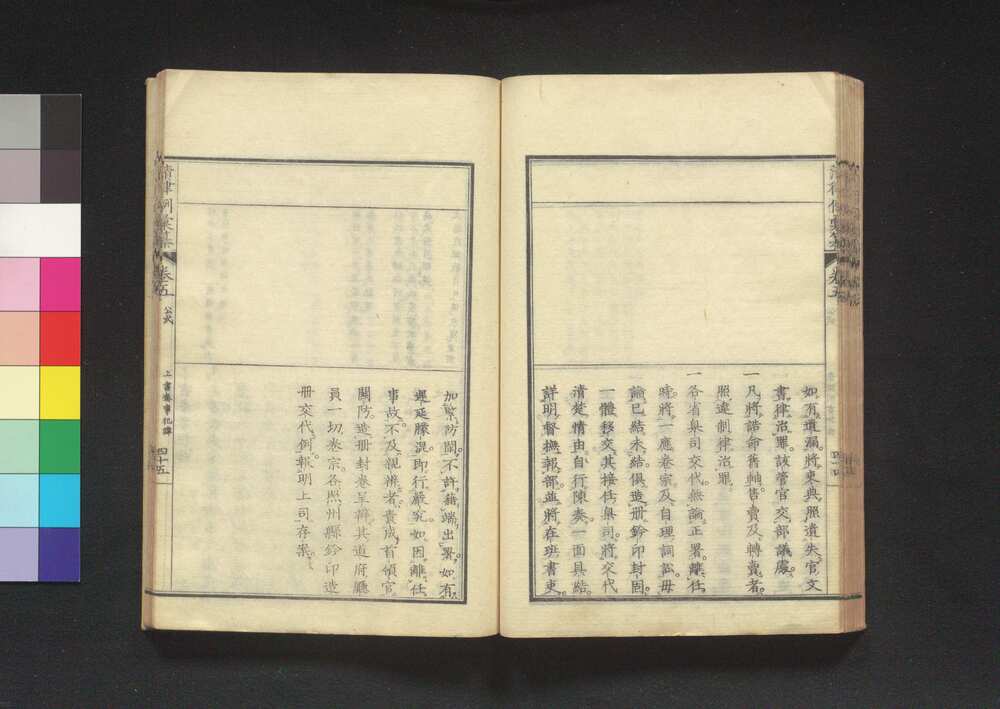 如有遺漏。將吏典。照遺失。官文
書律治罪。該管官。交部議處。
一凡將誥命舊軸。皆賣及。轉賣。者。
照違制律治罪。
一各省臬司交代。無論正署。離任。
時。將一應卷宗。及自理詞訟。毋
論已結未結。俱造册鈐印封固。
一體移交。其接任臬司。將交代
清楚情由。自行陳奏。一面具結。
詳明。督撫。報部。並將在班書吏。
加緊防閑。不許藉端出署。如有。
遲延朦混。即行嚴究。如因。離任
事故。不及親辦者。責成首領官
關防。造册封卷。呈榦其道府廳
員一切卷宗。各照州縣鈐印造
册交代例。報明上司存案。
清律例彙纂
卷五
公式
上書奏事犯諱
四十五